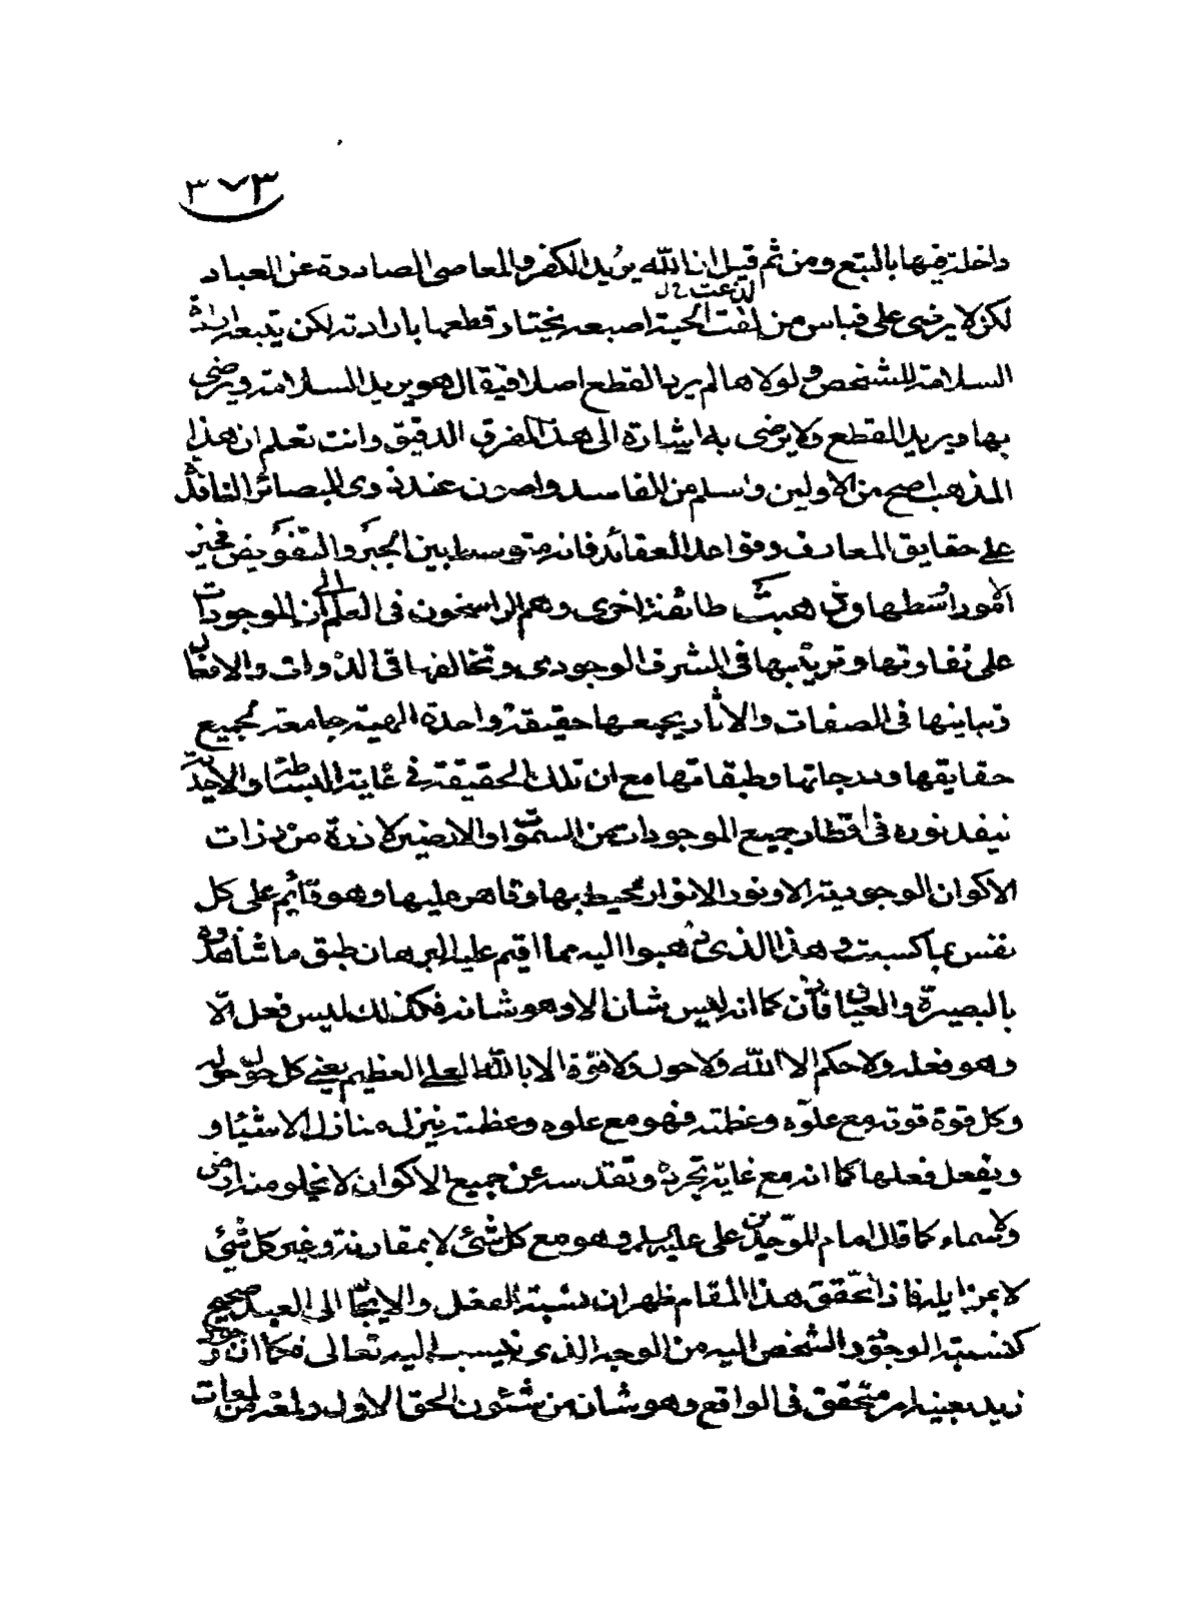 ٣٧٣
داخلة فيها بالتبع ومن ثم قيل ان الله يريد الكفر والمعاصى الصادرة عن العباد
لدغت
لكن لا يرضى على قياس من لفت الحية اصبعه يختار قطعها بارادته لكن يتبعه ارادة
السلامة للشخص ولولاها لم يرد القطع اصلا فيقال هو يريد السلامة ويرضى
بها ويريد القطع ولا يرضى به اشارة الى هذا الفرق الدقيق وانت تعلم ان هذا
المذهب اصح من الاولين واسلم من المفاسد واصون عند ذوى البصائر النافذة
على حقايق المعارف وقواعد العقائد فانه متوسط بين الجبر والتفويض فخير
الامور اوسطها وذهبت طائفة اخرى وهم الراسخون فى العلم الى ان الموجودات
على تفاوتها وترتبها فى الشرف الوجودى وتخالفها فى الذوات والافعال
وتباينها فى الصفات والاثار يجمعها حقيقة واحدة الهية جامعة لجميع
حقايقها ودرجاتها وطبقاتها مع ان تلك الحقيقة فى غاية البساطة والاحدية
ينفذ نوره فى اقطار جميع الموجودات من السموات والارضين لا ذرة من ذرات
الاكوان الوجودية الا ونور الانوار محيط بها وقاهر عليها وهو قائم على كل
نفس بما كسبت وهذا الذى ذهبوا اليه مما اقيم عليه البرهان طبق ما شاهدوه
بالبصيرة والعيان فاذن كما انه ليس شان الا وهو شانه فكذلك ليس فعل الا
وهو فعله ولا حكم الا الله ولا حول ولا قوة الا بالله العلى العظيم يعنى كل حول حوله
وكل قوة قوته مع علوه وعظمته فهو مع علوه وعظمته ينزل منازل الاشياء و
ويفعل فعلها كما انه مع غاية تجرده وتقدسه عن جميع الاكوان لا يخلو منه ارض
ولا سماء كما قال امام الموحدين على عليه السلم وهو مع كل شئ لا بمقارنة وغير كل شئ
لا بمزايلة فاذا تحقق هذا المقام ظهر ان نسبة الفعل والايجاد الى العبد صحيح
كنسبة الوجود والشخص اليه من الوجه الذى ينسب اليه تعالى فكما ان وجود
زيد بعينه امر متحقق فى الواقع وهو شان من شئون الحق الاول ولمعة من لمعات